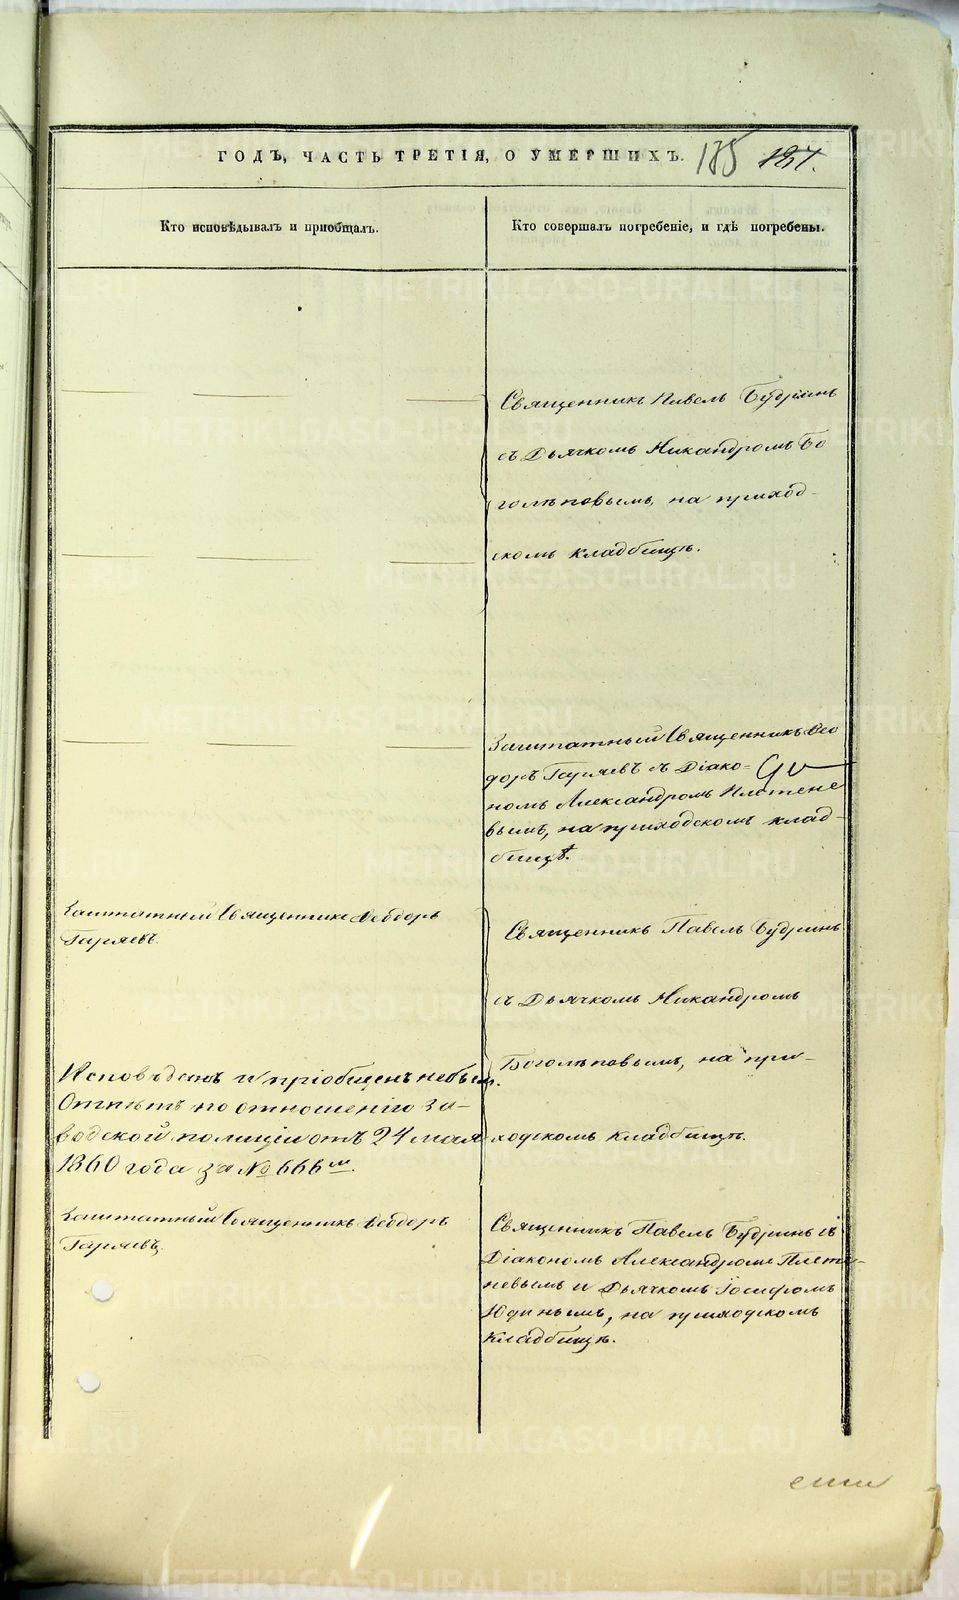 ГОДЪ, ЧАСТЬ ТРЕТІЯ, О УМЕРШИХЪ. 185 187.
Кто исповѣдывалъ и пріобщалъ.
Кто совершалъ погребеніе, и гдѣ погребены.
Священникъ Павелъ Будринъ
съ Дьячкомъ Никандромъ Бо
голѣповымъ, на приход-
скомъ кладбищѣ.
Заштатный Священникъ Ѳео
доръ Гаряевъ съ Діако-
номъ Александромъ Плетене
вымъ, на приходскомъ клад-
бищѣ.
Заштатный Священникъ Ѳеодоръ
Гаряевъ.
Священникъ Павелъ Будринъ
съ Дьячкомъ Никандромъ
Боголѣповымъ, на при-
ходскомъ кладбищѣ.
Исповѣданъ и пріобщенъ небылъ.
Отпѣтъ по отношенію за-
водской полиціи отъ 24 мая
1860 года за № 666м.
Заштатный Священникъ Ѳеодоръ
Гаряевъ.
Священникъ Павелъ Будринъ съ
Діакономъ Александромъ Плете-
невымъ и Дьячкомъ Іосифомъ
Юдинымъ, на приходскомъ
кладбищѣ.
METRIKI.GASO-URAL.RU